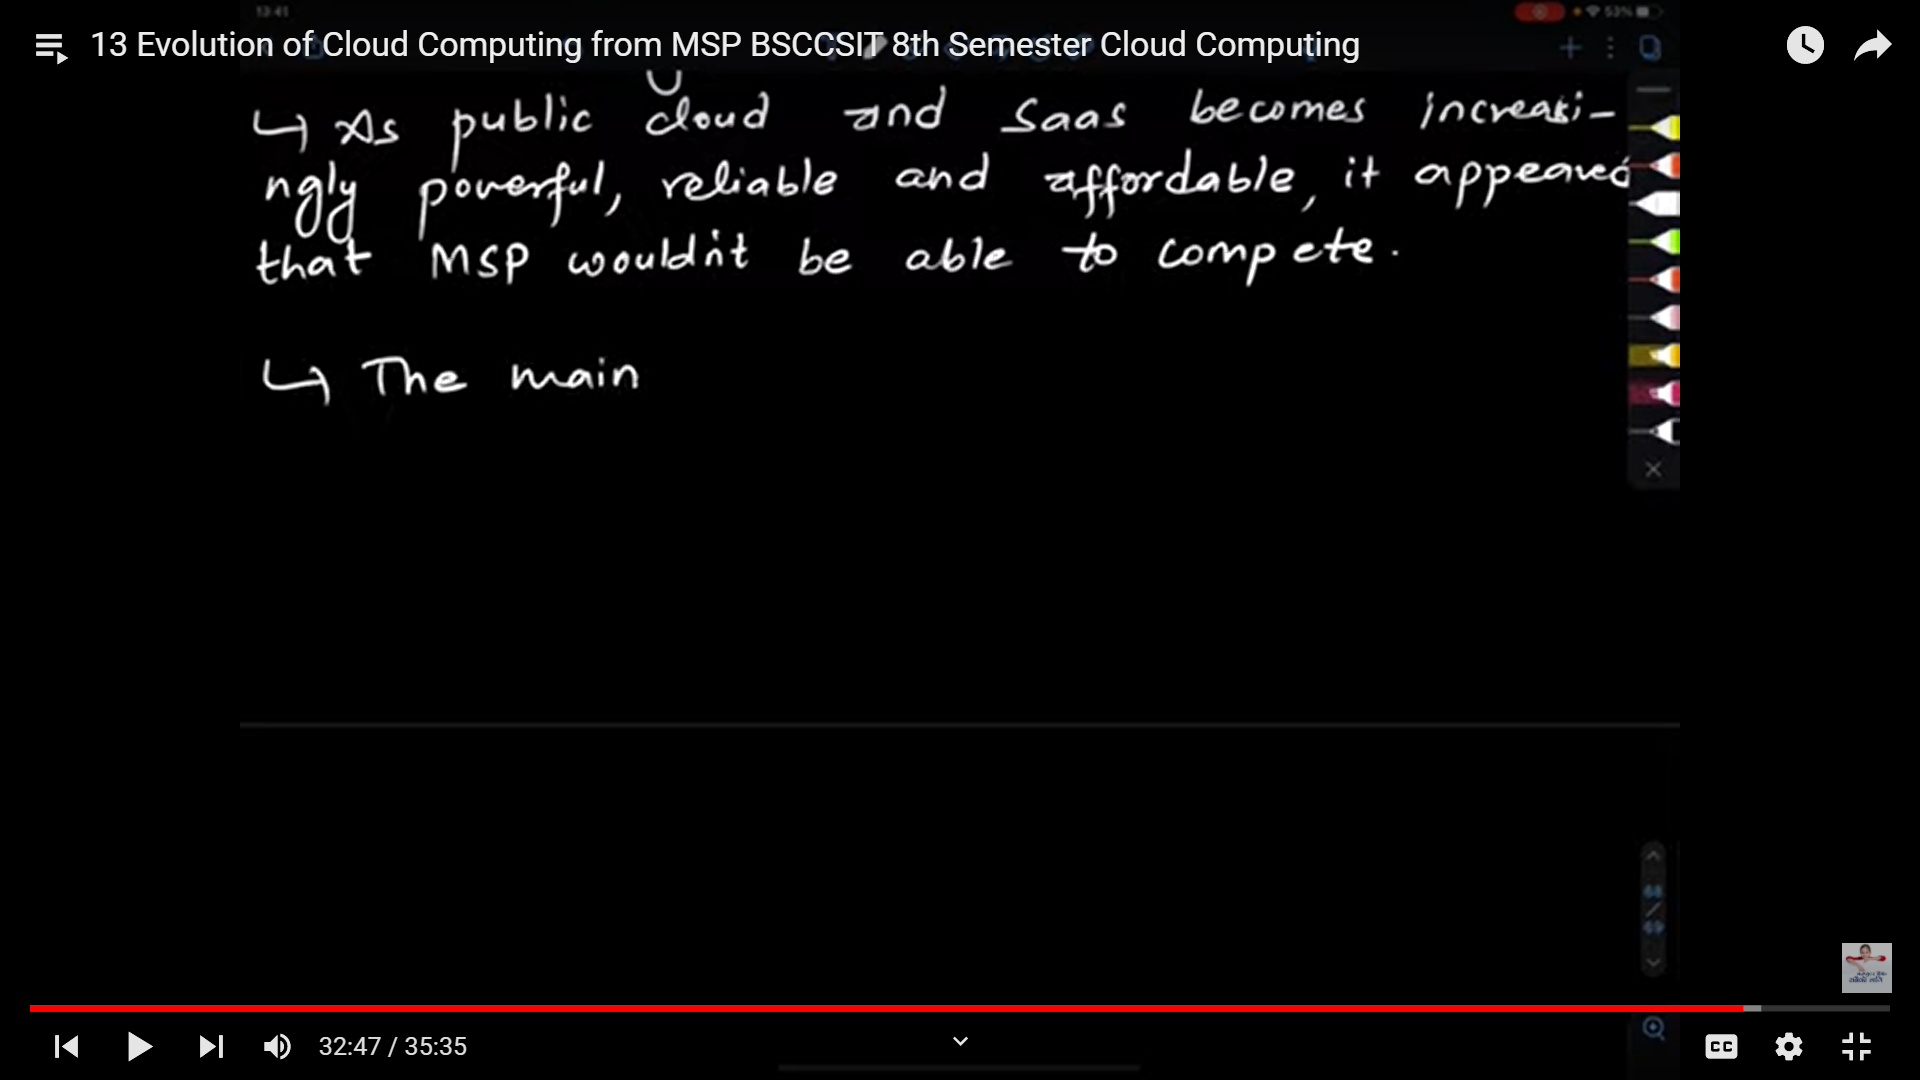 13:41
53%
13 Evolution of Cloud Computing from MSP BSCCSIT 8th Semester Cloud Computing
↳ As public cloud and Saas becomes increasi-
ngly powerful, reliable and affordable, it appeared
that MSP wouldn't be able to compete.
↳ The main
68
/
69
32:47 / 35:35
CC